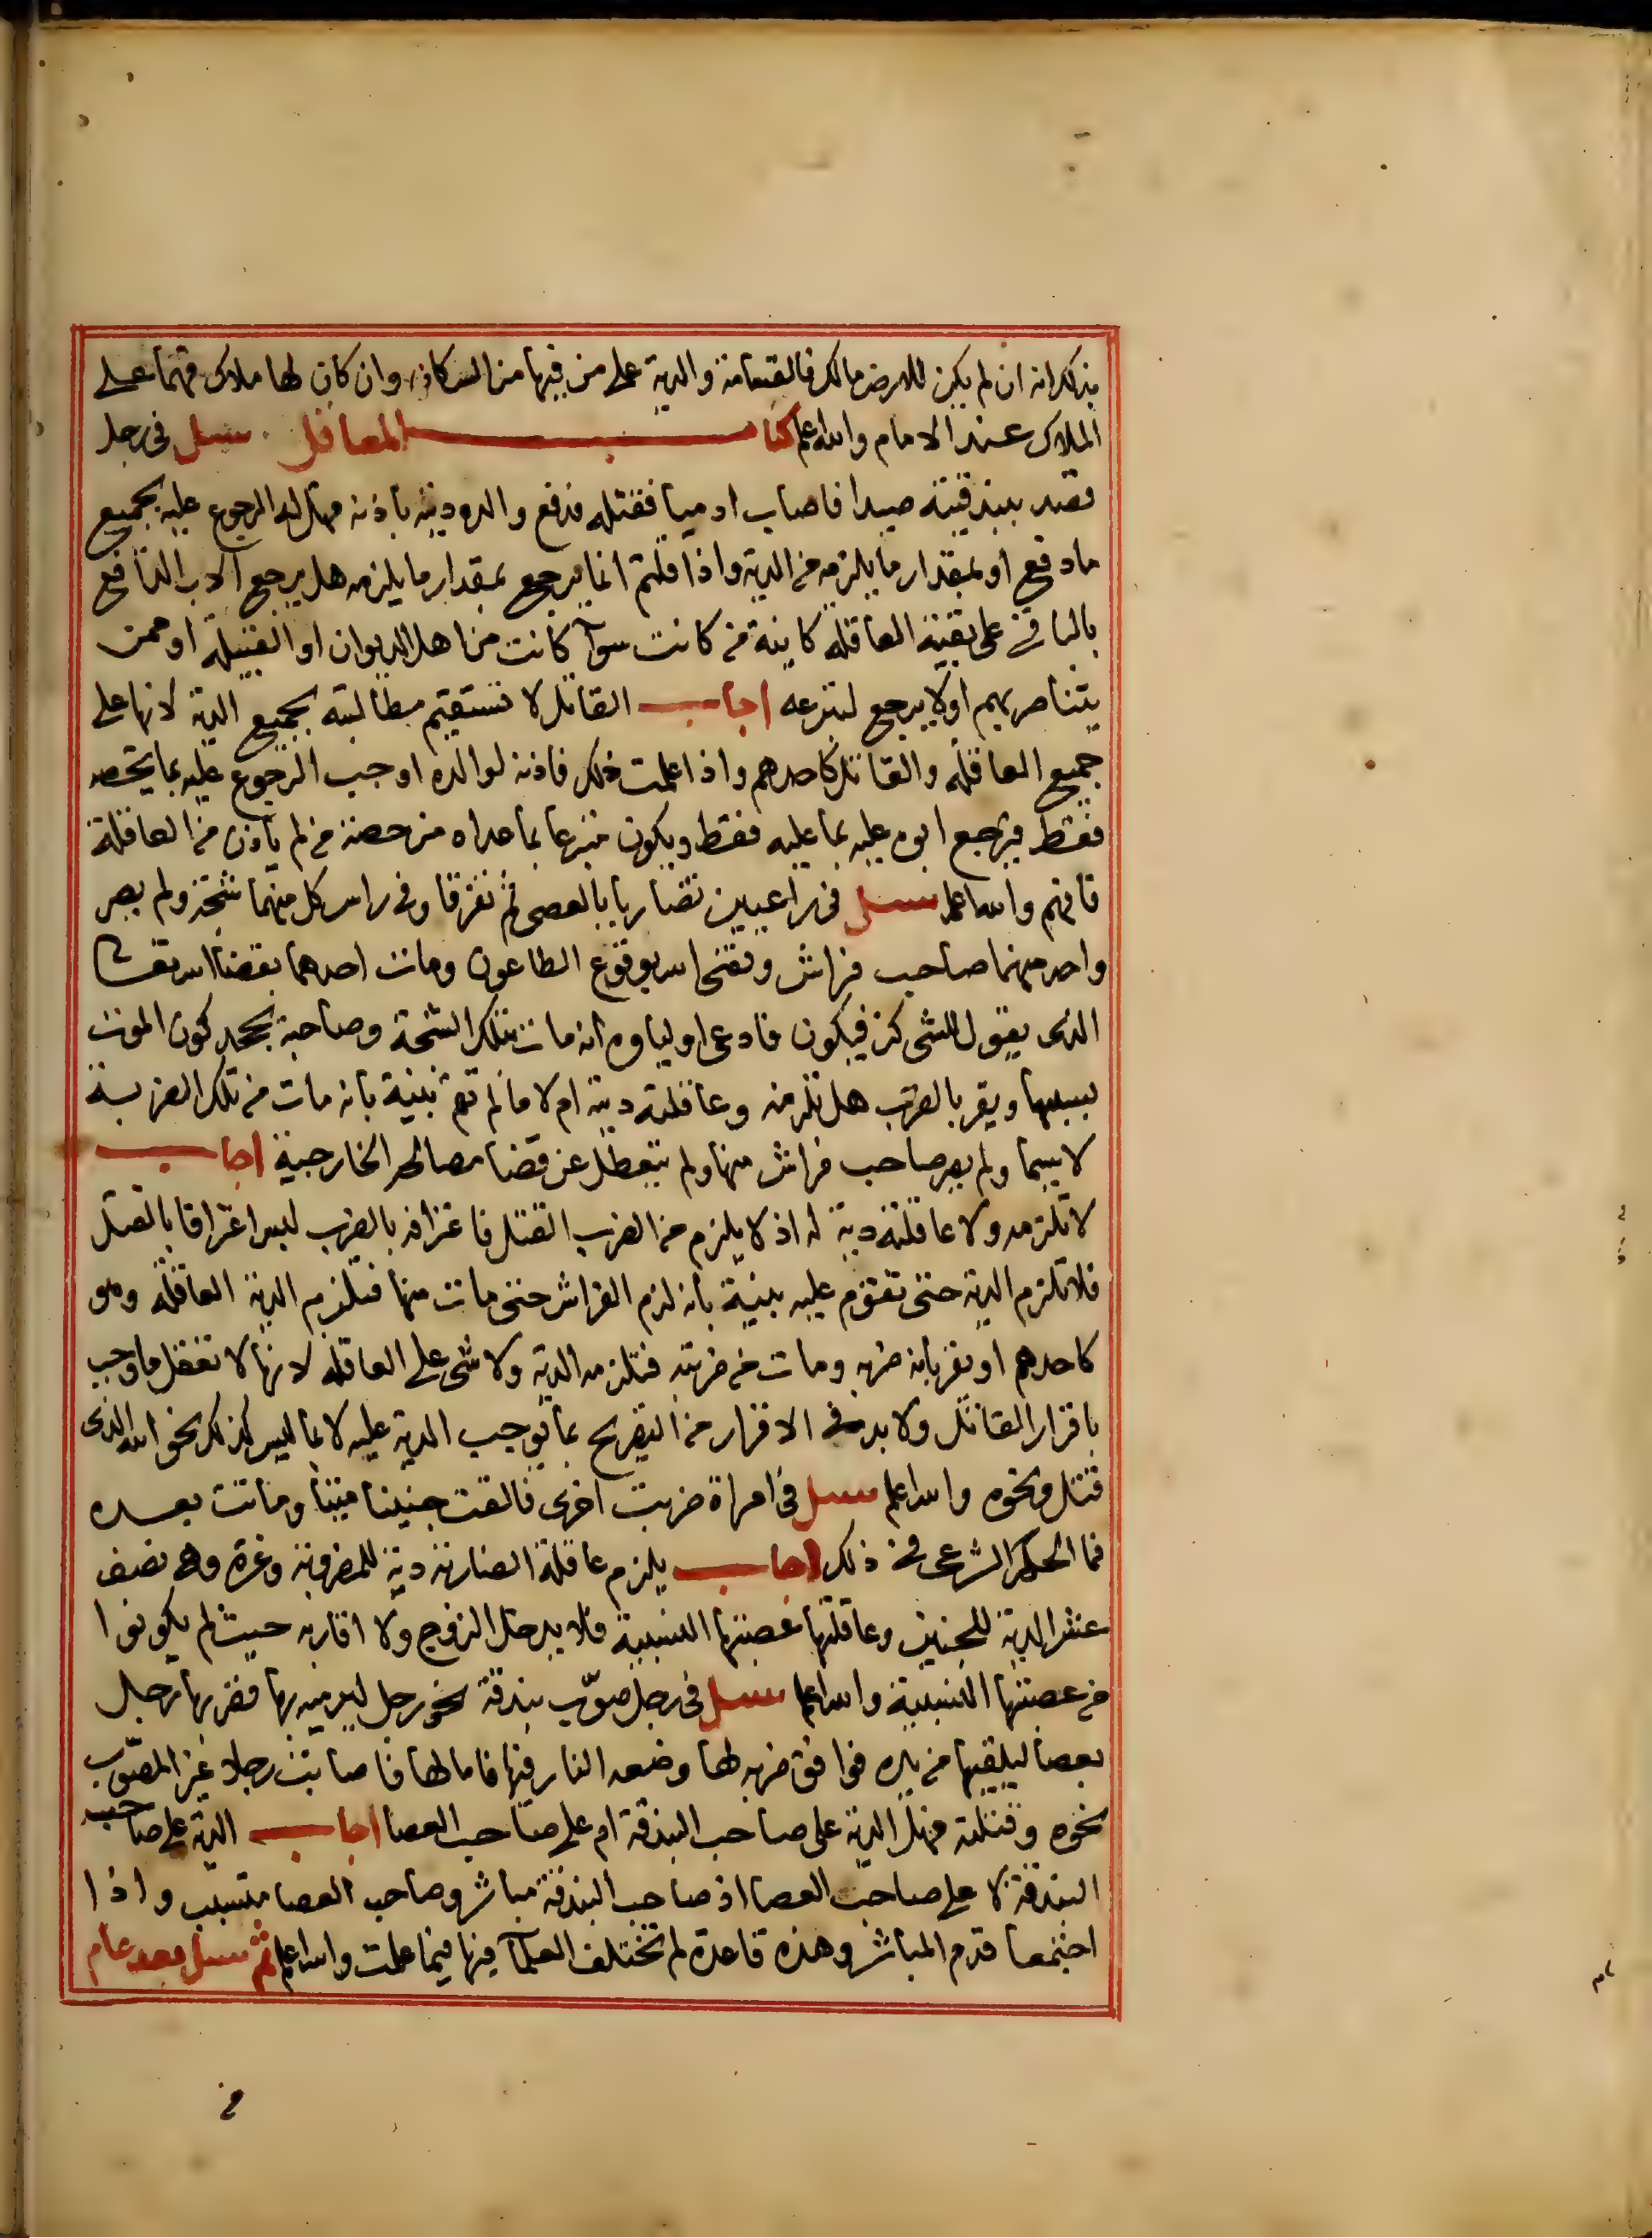 بذلك انه ان لم يكن للارض مالك فالقسامة والدية على من فيها من السكان وان كان لها ملاك فهما على
الملاك عند الامام والله اعلم كتاب المعاقل سئل فى رجل
قصد ببندقيته صيدا فاصاب ادميا فقتله فدفع والده ديته باذنه فهل له الرجوع عليه بجميع
ما دفع او بمقدار ما يلزمه من الدية واذا قلتم انما يرجع بمقدار ما يلزمه هل يرجع الاب الدافع
بالباقى على بقية العاقلة كاينة من كانت سوآ كانت من اهل الديوان او القبيلة او ممن
يتناصر بهم او لا يرجع لتبرعه اجاب القاتل لا تستقيم مطالبته بجميع الدية لانها على
جميع العاقلة والقاتل كاحدهم واذا علمت ذلك فاذنه لوالده اوجب الرجوع عليه بما يخصه
فقط فيرجع ابوه عليه بما عليه فقط ويكون متبرعا بما عداه من حصة من لم ياذن من العاقلة
فافهم والله اعلم سئل فى راعيين تضاربا بالعصى ثم تفرقا وفى راس كل منهما شجة ولم يصر
واحد منهما صاحب فراش وقضى الله بوقوع الطاعون ومات احدهما بقضا الله تعالى
الذى يقول للشى كن فيكون فادعى اولياوه انه مات بتلك الشجة وصاحبه يجحد كون الموت
بسببها ويقر بالضرب هل تلزمه وعاقلته ديته ام لا ما لم تقم بينة بانه مات من تلك الضربة
لا سيما ولم يصر صاحب فراش منها ولم يتعطل عن قضا مصالحه الخارجية اجاب
لا تلزمه ولا عاقلته دية له اذ لا يلزم من الضرب القتل فاعترافه بالضرب ليس اعترافا بالقتل
فلا تلزم الدية حتى تقوم عليه بينة بانه لزم الفراش حتى مات منها فتلزم الدية العاقلة وهو
كاحدهم او يقر بانه ضربه ومات من ضربته فتلزمه الدية ولا شى على العاقلة لانها لا تعقل ما وجب
باقرار القاتل ولا بد فى الاقرار من التصريح بما يوجب الدية عليه لا بما ليس كذلك نحو الله الذى
قتل ونحوه والله اعلم سئل فى امراة ضربت اخرى فالقت جنينا ميتا وماتت بعده
فما الحكم الشرعى فى ذلك اجاب يلزم عاقلة الضاربة دية للمضروبة وغرة وهى نصف
عشر الدية للجنين وعاقلتها عصبتها النسبية فلا يدخل الزوج ولا اقاربه حيث لم يكونوا
من عصبتها النسبية والله اعلم سئل فى رجل صوّب بندقة نحو رجل ليرميه بها فضربها رجل
بعصا ليلقيها من يده فوافق ضربه لها وضعه النار فيها فامالها فاصابت رجلا غير المصوّب
نحوه وقتلته فهل الدية على صاحب البندقة ام على صاحب العصا اجاب الدية على صاحب
البندقة لا على صاحب العصا اذ صاحب البندقة مباشر وصاحب العصا متسبب واذا
اجتمعا قدم المباشر وهذه قاعدة لم تختلف العلمآ فيها فيما علمت والله اعلم ثم سئل بعد عام